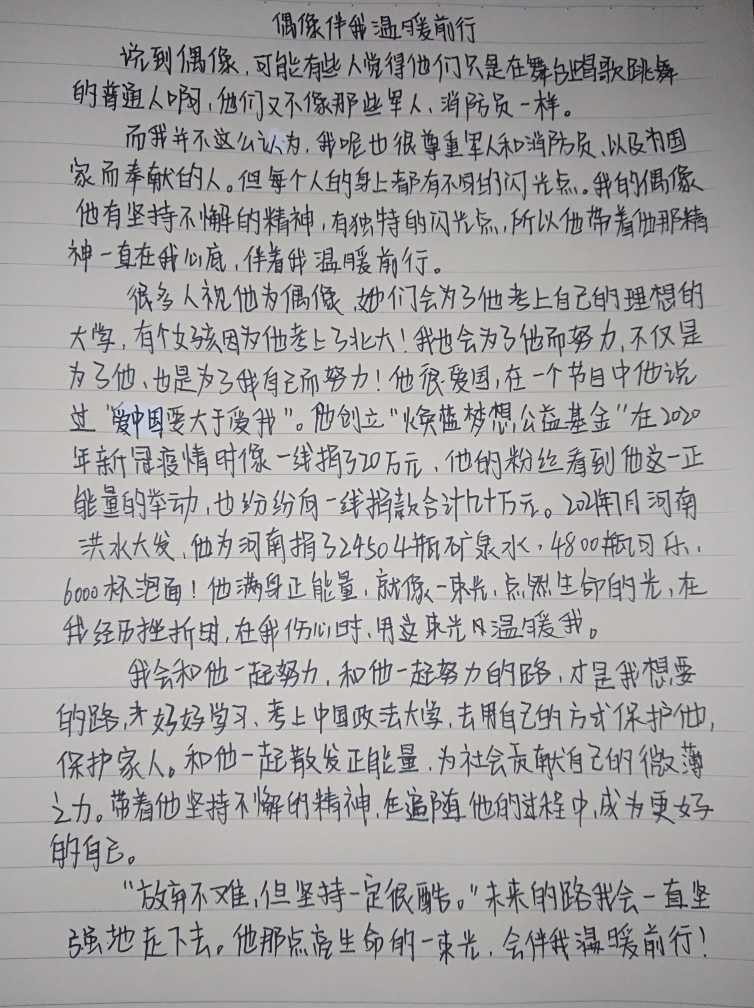 偶像伴我温暖前行
说到偶像,可能有些人觉得他们只是在舞台唱歌跳舞
的普通人啊,他们又不像那些军人、消防员一样。
而我并不这么认为,我呢也很尊重军人和消防员,以及为国
家而奉献的人。但每个人的身上都有不同的闪光点。我的偶像
他有坚持不懈的精神,有独特的闪光点,所以他带着他那精
神一直在我心底,伴着我温暖前行。
很多人视他为偶像,她们会为了他考上自己的理想的
大学,有个女孩因为他考上了北大!我也会为了他而努力,不仅是
为了他,也是为了我自己而努力!他很爱国,在一个节目中他说
过“爱中国要大于爱我”。他创立“焕蓝梦想公益基金”在2020
年新冠疫情时像一线捐了20万元,他的粉丝看到他这一正
能量的举动,也纷纷向一线捐款合计几十万元。2021年7月河南
洪水大发,他为河南捐了24504瓶矿泉水,4800瓶可乐,
6000杯泡面!他满身正能量,就像一束光,点燃生命的光,在
我经历挫折时,在我伤心时,用这束光温暖我。
我会和他一起努力,和他一起努力的路,才是我想要
的路,才好好学习、考上中国政法大学,去用自己的方式保护他,
保护家人。和他一起散发正能量,为社会贡献自己的微薄
之力。带着他坚持不懈的精神,在追随他的过程中,成为更好
的自己。
“放弃不难,但坚持一定很酷。”未来的路我会一直坚
强地走下去。他那点亮生命的一束光,会伴我温暖前行!